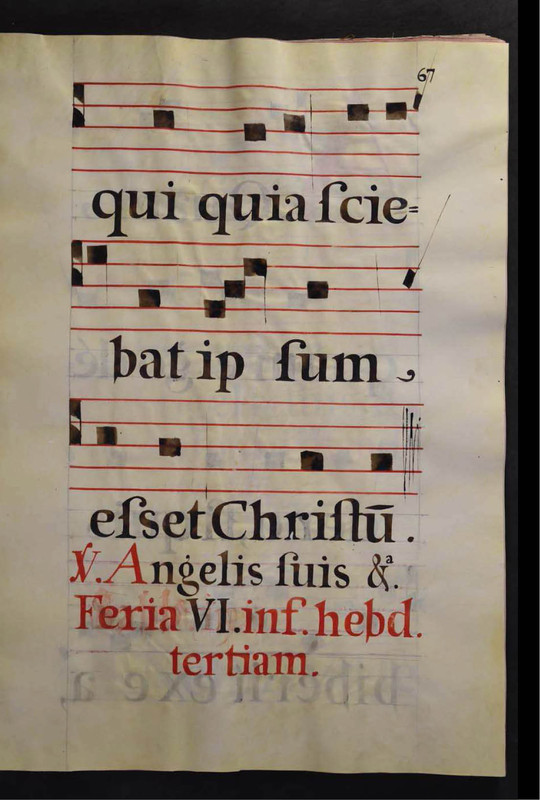 67
qui quia ſcie=
bat ip ſum ,
eſset Chriſtū .
℣. Angelis ſuis &ᵃ.
Feria VI. inf. hebd.
tertiam.